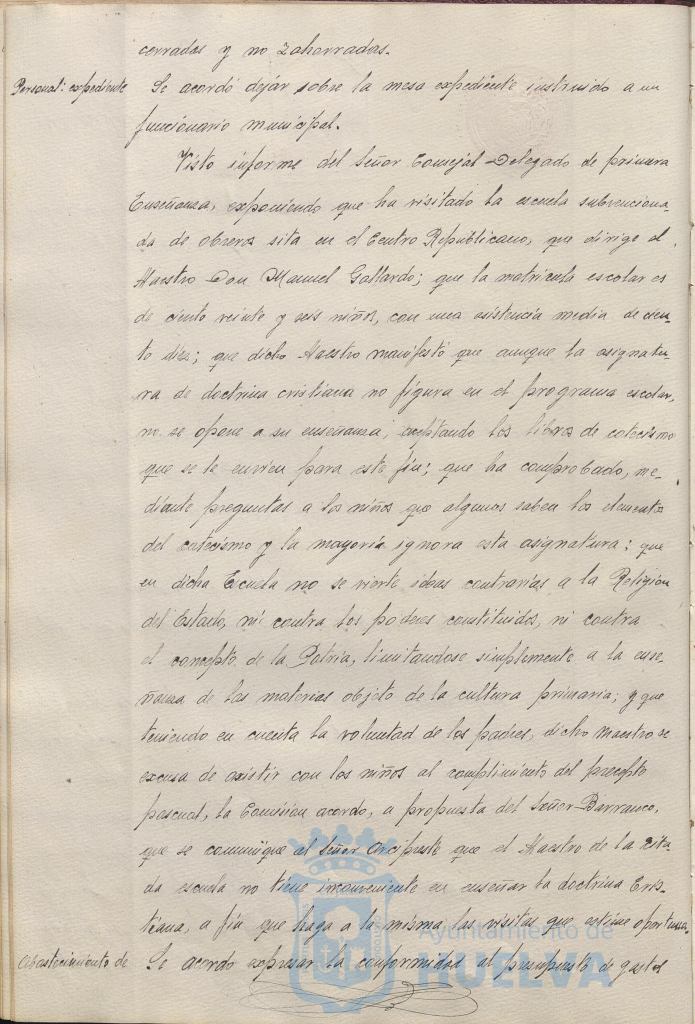 cerradas y no zahorradas.
Personal: expediente Se acordó dejar sobre la mesa expediente instruido a un
funcionario municipal.
Visto informe del Señor Concejal Delegado de primera
Enseñanza, exponiendo que ha visitado la escuela subvenciona-
da de obreros sita en el Centro Republicano, que dirige el
Maestro Don Manuel Gallardo; que la matricula escolar es
de ciento veinte y seis niños, con una asistencia media de cien-
to diez; que dicho Maestro manifestó que aunque la asignatu-
ra de doctrina cristiana no figura en el programa escolar,
no se opone a su enseñanza, aceptando los libros de catecismo
que se le envien para este fin; que ha comprobado, me-
diante preguntas a los niños que algunos saben los elementos
del catecismo y la mayoría ignora esta asignatura; que
en dicha Escuela no se vierte ideas contrarias a la Religion
del Estado, ni contra los poderes constituidos, ni contra
el concepto de la Patria, limitandose simplemente a la ense-
ñanza de las materias objeto de la cultura primaria; y que
teniendo en cuenta la voluntad de los padres, dicho maestro se
excusa de asistir con los niños al cumplimiento del precepto
pascual, la Comision acordo, a propuesta del Señor Barranco,
que se comunique al Señor Arcipreste que el Maestro de la cita-
da escuela no tiene inconveniente en enseñar la doctrina Cris-
tiana, a fin que haga a la misma las visitas que estime oportunas.
Abastecimiento de Se acordo expresar la conformidad al presupuesto de gastos
Ayuntamiento de
HUELVA